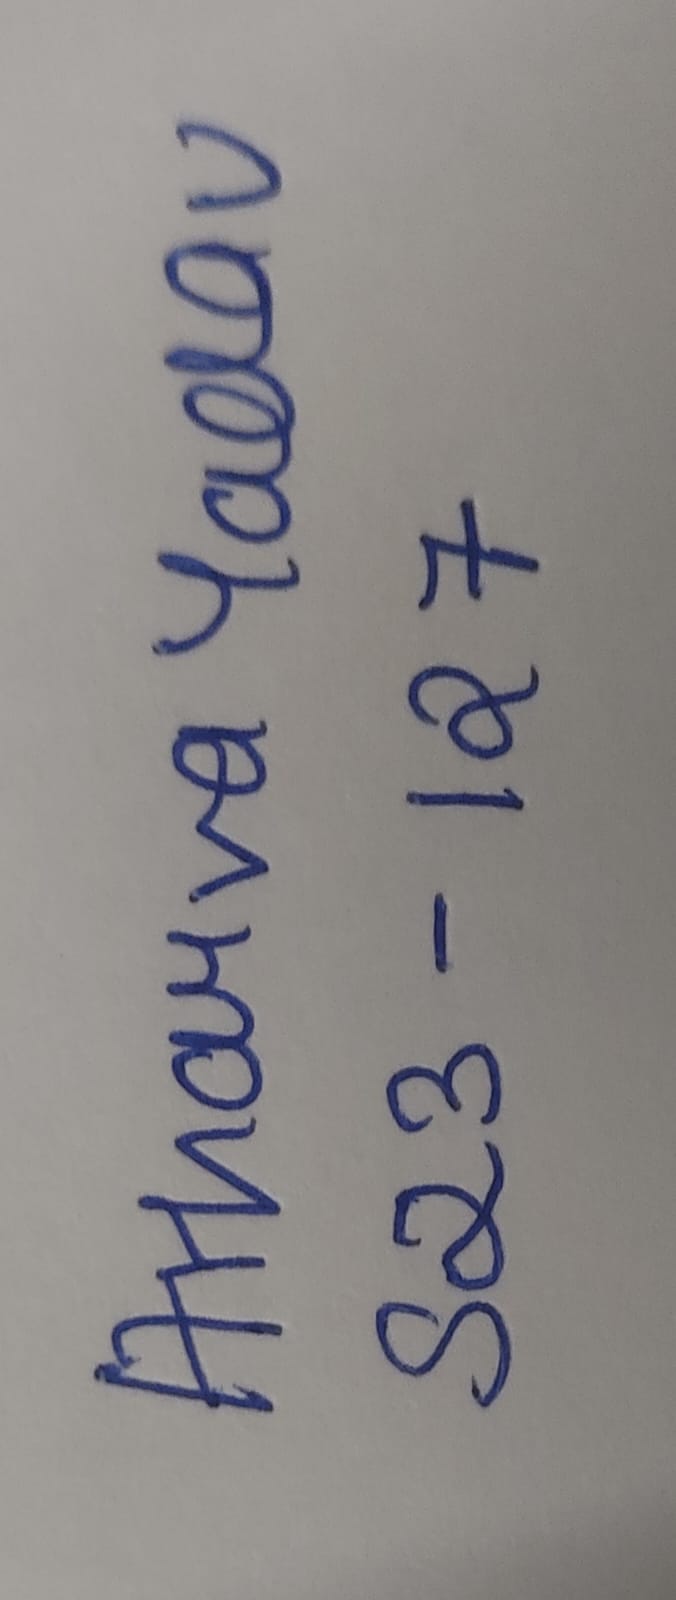 Atharva Yadav
S23-127